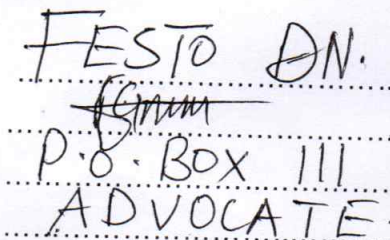 FESTO DN.
P.O. BOX 111
ADVOCATE